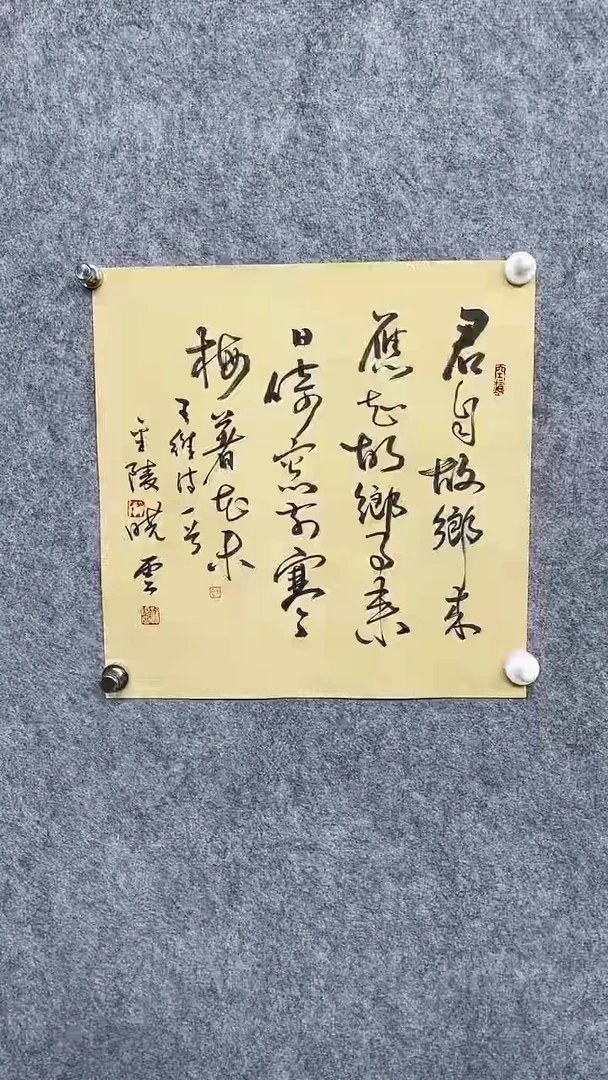 君自故鄉來
應知故鄉事來
日綺窓前寒
梅著花未
王維詩一首
金陵曉雲